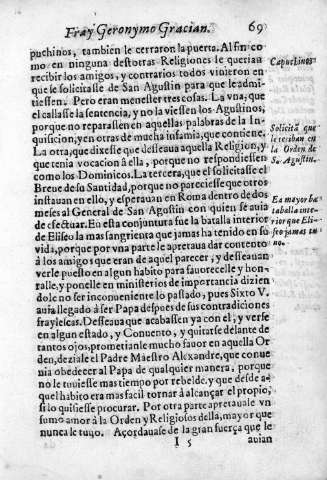 Fray Geronymo Gracian. 69
puchinos, tambien le cerraron la puerta. Al fin co
mo en ninguna destotras Religiones le querian
recibir los amigos, y contrarios todos vinieron en
que se solicitasse de San Agustin para que le admi-
tiessen. Pero eran menester tres cosas. La vna, que
el callasse la sentencia, y no la viessen los Agustinos,
porque no reparassen en aquellas palabras de la In-
quisicion, y en otras de mucha infamia, que contiene.
La otra, que dixesse que desseaua aquella Religion, y
que tenia vocacion à ella, porque no respondiessen
como los Dominicos. La tercera, que el solicitasse el
Breue de su Santidad, porque no pareciesse que otros
instauan en ello, y esperauan en Roma dentro de dos
meses al General de San Agustin con quien se auia
de efectuar. En esta conjuntura fue la batalla interior
de Eliseo la mas sangrienta que jamas ha tenido en su
vida, porque por vna parte le apretaua dar contento
à los amigos que eran de aquel parecer, y desseauan
verle puesto en algun habito para fauorecelle y hon-
ralle, y ponelle en ministerios de importancia dizien
dole no ser inconueniente lo passado, pues Sixto V.
auia llegado à ser Papa despues de sus contradiciones
fraylescas. Desseaua que acabassen ya con el, y verse
en algun estado, y Conuento, y quitarse delante de
tantos ojos, prometianle mucho fauor en aquella Or
den, deziale el Padre Maestro Alexandre, que conue
nia obedecer al Papa de qualquier manera, porque
no le tuuiesse mas tiempo por rebelde, y que desde a-
quel habito era mas facil tornar à alcançar el propio,
si lo quisiesse procurar. Por otra parte apretauale vn
sumo amor à la Orden y Religiosos della, mayor que
nunca le tuuo. Acordauase de la gran fuerça que le
I 5 auian
Capuchinos
Solicitã que
le reciban en
la Orden de
S. Agustin.
Ea mayor ba
talla inte-
rior que Eli-
seo jamas tu
no.